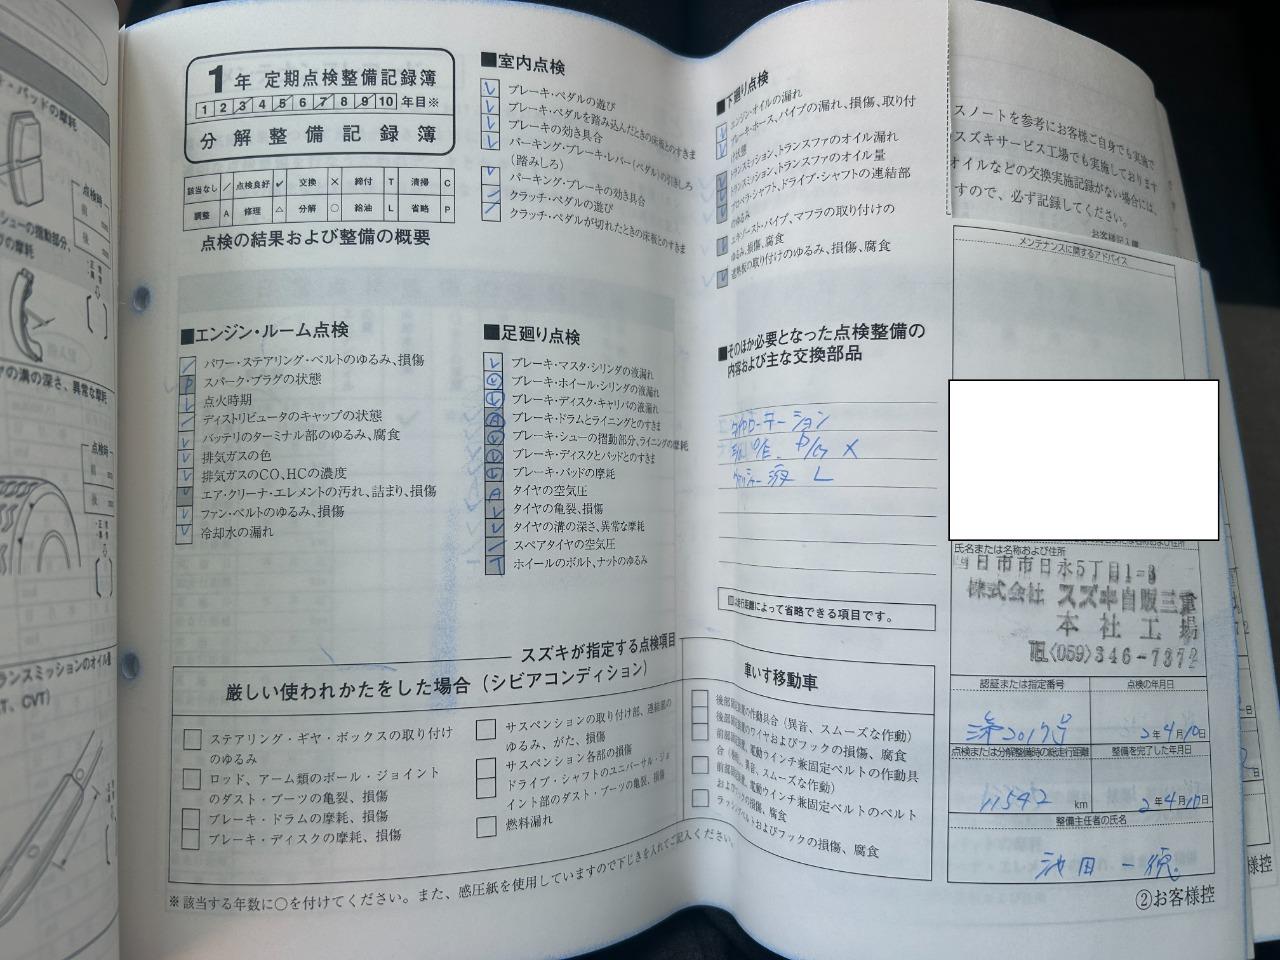 1年 定期点検整備記録簿
1 2 3 4 5 6 7 8 9 10 年目※
分解整備記録簿
該当なし ／ 点検良好 ✓ 交換 × 締付 T 清掃 C
調整 A 修理 △ 分解 ○ 給油 L 省略 P
点検の結果および整備の概要
■エンジン・ルーム点検
パワー・ステアリング・ベルトのゆるみ、損傷
P スパーク・プラグの状態
点火時期
ディストリビュータのキャップの状態
バッテリのターミナル部のゆるみ、腐食
排気ガスの色
排気ガスのCO、HCの濃度
エア・クリーナ・エレメントの汚れ、詰まり、損傷
ファン・ベルトのゆるみ、損傷
冷却水の漏れ
■室内点検
ブレーキ・ペダルの遊び
ブレーキ・ペダルを踏み込んだときの床板とのすきま
ブレーキの効き具合
パーキング・ブレーキ・レバー(ペダル)の引きしろ
(踏みしろ)
パーキング・ブレーキの効き具合
クラッチ・ペダルの遊び
クラッチ・ペダルが切れたときの床板とのすきま
■足廻り点検
ブレーキ・マスタ・シリンダの液漏れ
ブレーキ・ホイール・シリンダの液漏れ
ブレーキ・ディスク・キャリパの液漏れ
A ブレーキ・ドラムとライニングとのすきま
ブレーキ・シューの摺動部分、ライニングの摩耗
ブレーキ・ディスクとパッドとのすきま
ブレーキ・パッドの摩耗
A タイヤの空気圧
タイヤの亀裂、損傷
タイヤの溝の深さ、異常な摩耗
スペアタイヤの空気圧
T ホイールのボルト、ナットのゆるみ
■下廻り点検
エンジン・オイルの漏れ
ブレーキ・ホース、パイプの漏れ、損傷、取り付
け状態
トランスミッション、トランスファのオイル漏れ
トランスミッション、トランスファのオイル量
プロペラ・シャフト、ドライブ・シャフトの連結部
のゆるみ
エキゾースト・パイプ、マフラの取り付けの
ゆるみ、損傷、腐食
遮熱板の取り付けのゆるみ、損傷、腐食
■そのほか必要となった点検整備の
内容および主な交換部品
タイヤローテーション
ウォッシャー液 L
は走行距離によって省略できる項目です。
スズキが指定する点検項目
厳しい使われかたをした場合(シビアコンディション)
ステアリング・ギヤ・ボックスの取り付け
のゆるみ
ロッド、アーム類のボール・ジョイント
のダスト・ブーツの亀裂、損傷
ブレーキ・ドラムの摩耗、損傷
ブレーキ・ディスクの摩耗、損傷
サスペンションの取り付け部、連結部の
ゆるみ、がた、損傷
サスペンション各部の損傷
ドライブ・シャフトのユニバーサル・ジョ
イント部のダスト・ブーツの亀裂、損傷
燃料漏れ
車いす移動車
電動ウインチ兼固定ベルトの作動具
合
電動ウインチ兼固定ベルトのベルト
およびフックの損傷、腐食
ラッシングベルトおよびフックの損傷、腐食
※該当する年数に○を付けてください。また、感圧紙を使用していますので下じきを入れてご記入ください。
スノートを参考にお客様ご自身でも実施で
スズキサービス工場でも実施しております
オイルなどの交換実施記録がない場合には、
すので、必ず記録してください。
お客様記入欄
メンテナンスに関するアドバイス
氏名または名称および住所
日市市日永5丁目1-3
株式会社 スズキ自販三重
本社工場
TEL〈059〉346-7372
認証または指定番号
点検の年月日
2年4月10日
点検または分解整備時の総走行距離
整備を完了した年月日
11542 km
2年4月10日
整備主任者の氏名
池田 一徳
②お客様控
・パッドの摩耗
点検時
シューの摺動部分、
グの摩耗
ヤの溝の深さ、異常な摩耗
点検時
ランスミッションのオイル量
T、CVT)